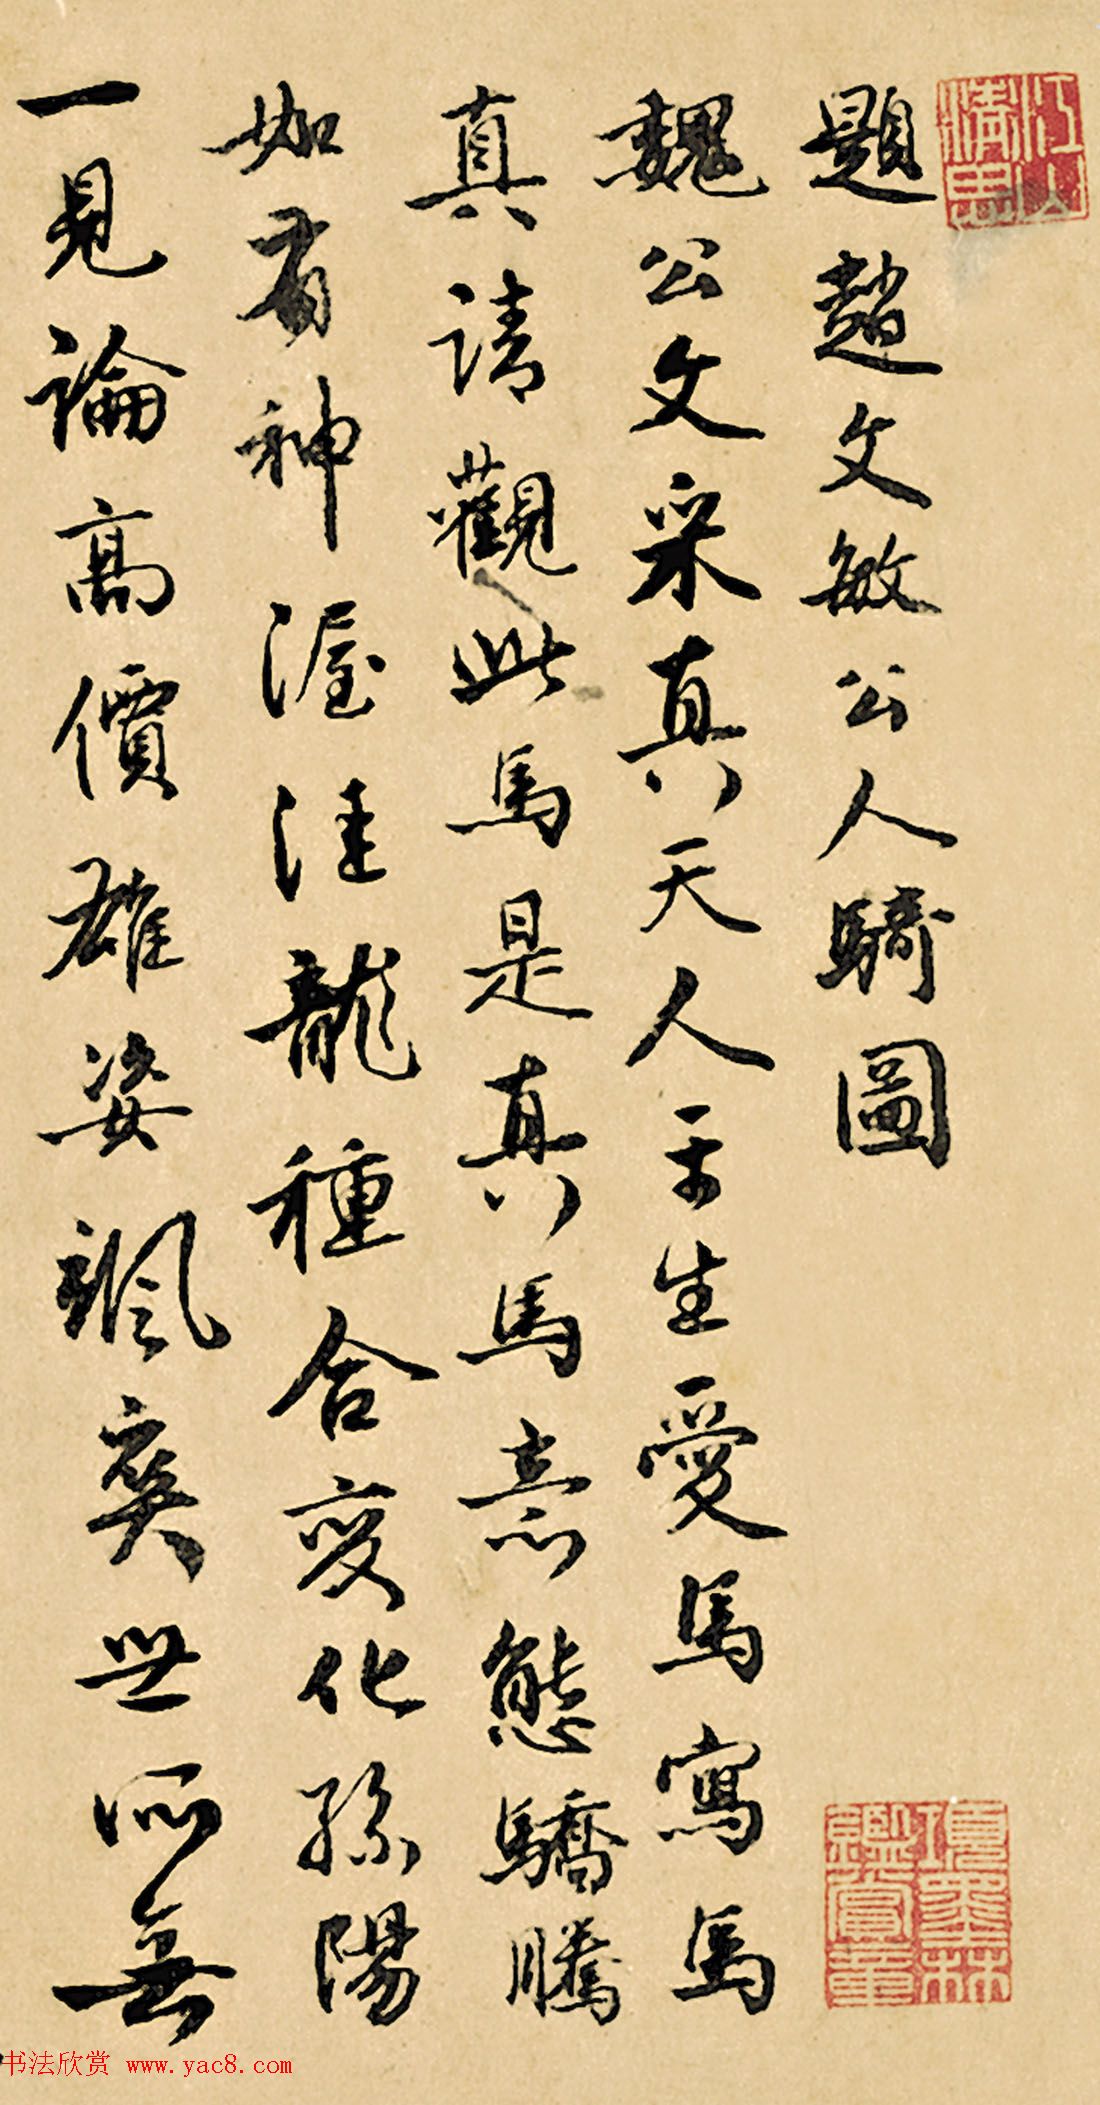 題趙文敏公人騎圖
項墨林鑑賞章
魏公文采真天人平生愛馬寫馬
真請觀此馬是真馬意態驕騰
如有神渥洼龍種合變化孫陽
一見論高價雄姿颯爽世所無
书法欣赏 www.yac8.com